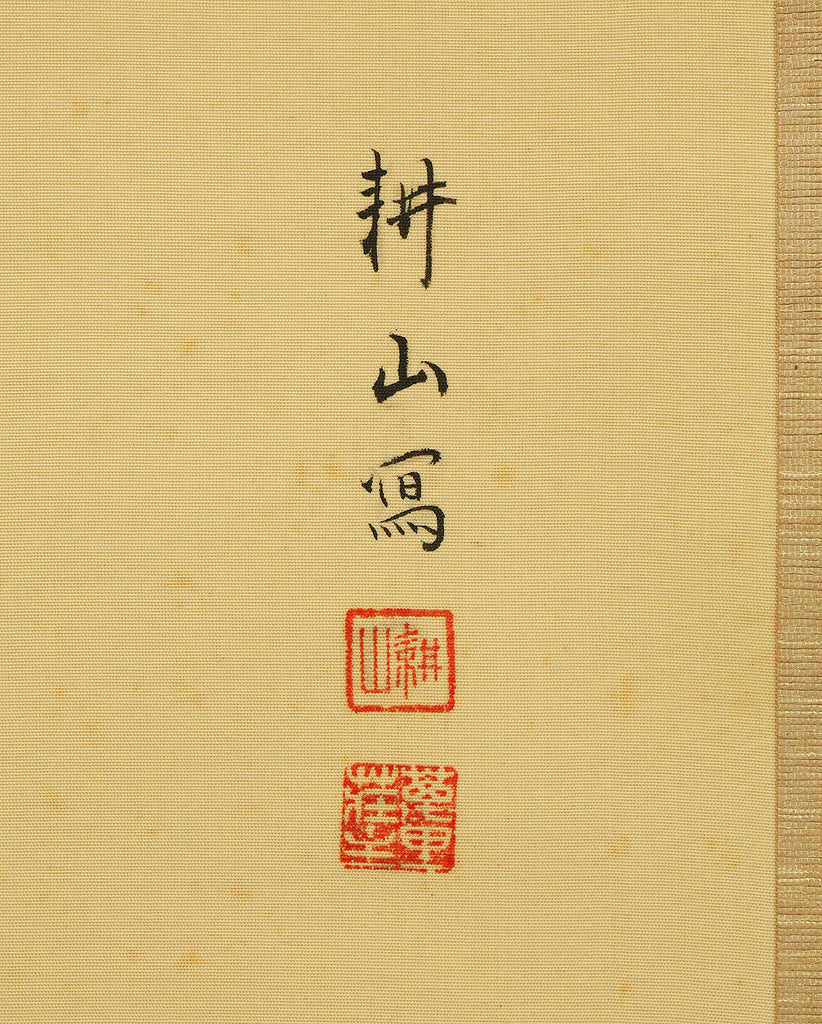 耕山寫
耕山